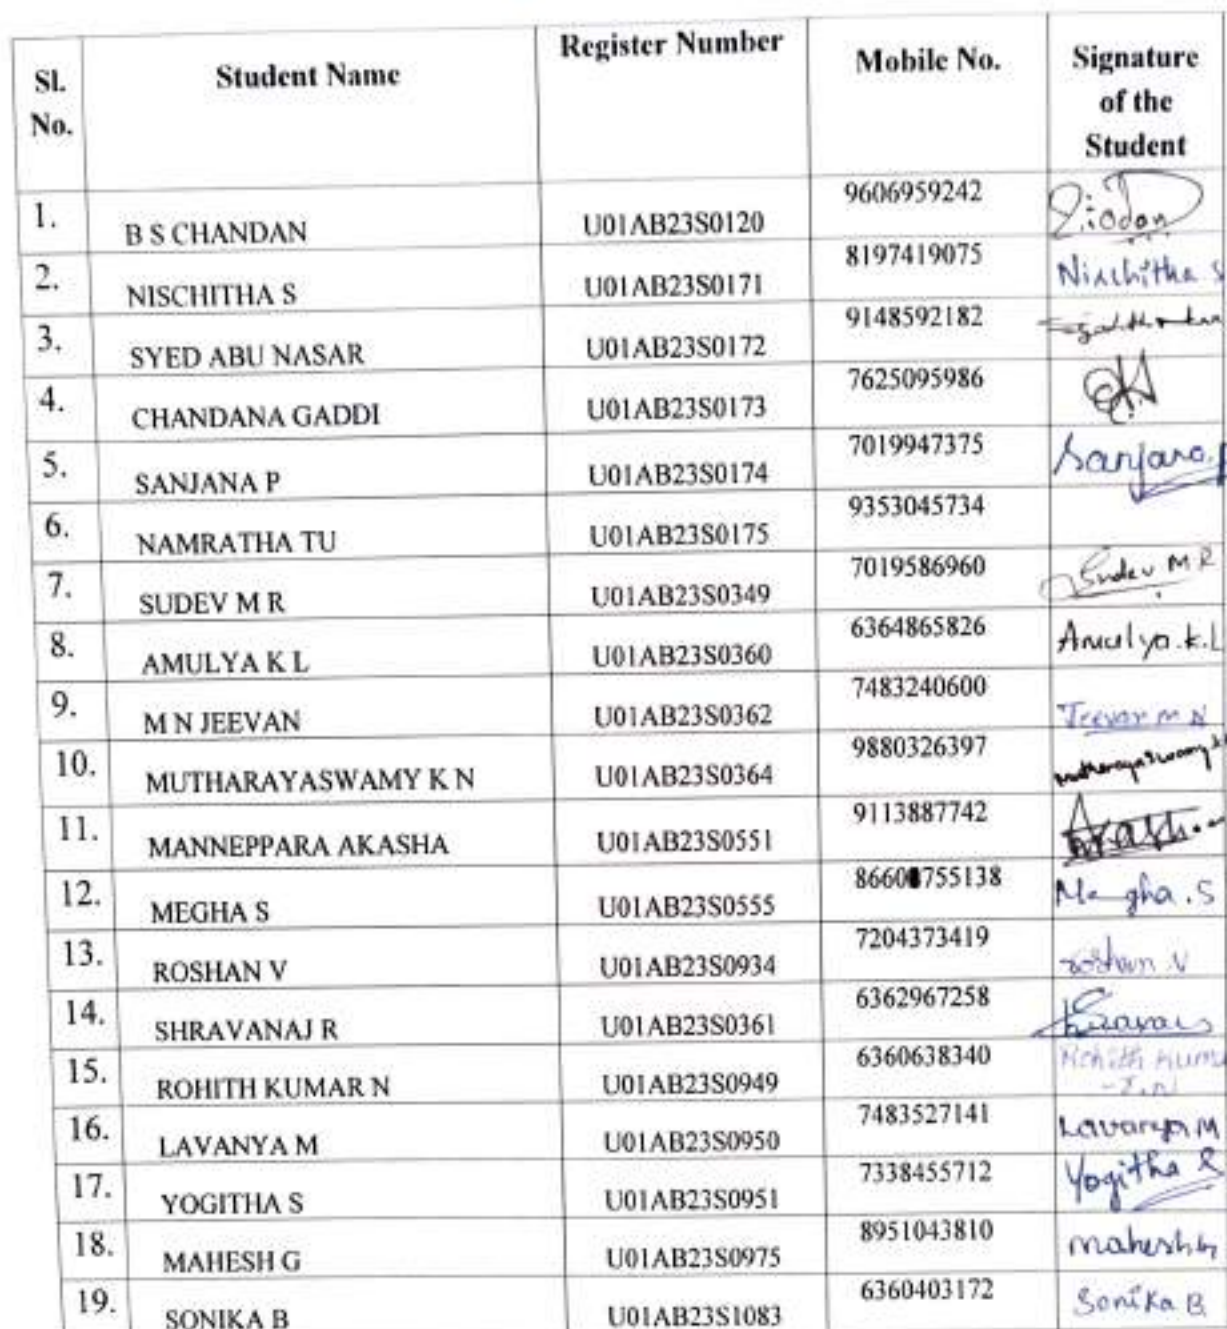 Sl. No. Student Name Register Number Mobile No. Signature of the Student
1. B S CHANDAN U01AB23S0120 9606959242
2. NISCHITHA S U01AB23S0171 8197419075 Nischitha S
3. SYED ABU NASAR U01AB23S0172 9148592182
4. CHANDANA GADDI U01AB23S0173 7625095986
5. SANJANA P U01AB23S0174 7019947375 Sanjana. P
6. NAMRATHA TU U01AB23S0175 9353045734
7. SUDEV M R U01AB23S0349 7019586960 Sudev M R
8. AMULYA K L U01AB23S0360 6364865826 Amulya.K.L
9. M N JEEVAN U01AB23S0362 7483240600 Jeevan M N
10. MUTHARAYASWAMY K N U01AB23S0364 9880326397 mutharayaswamy
11. MANNEPPARA AKASHA U01AB23S0551 9113887742 Akash
12. MEGHA S U01AB23S0555 8660 755138 Megha.S
13. ROSHAN V U01AB23S0934 7204373419 roshan V
14. SHRAVANAJ R U01AB23S0361 6362967258
15. ROHITH KUMAR N U01AB23S0949 6360638340 Rohith Kuma
16. LAVANYA M U01AB23S0950 7483527141 Lavanya M
17. YOGITHA S U01AB23S0951 7338455712 Yogitha S
18. MAHESH G U01AB23S0975 8951043810 mahesh G
19. SONIKA B U01AB23S1083 6360403172 Sonika B